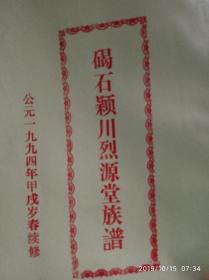 碣石颖川烈源堂族譜
公元一九九四年甲戌岁春续修
2019/10/15 07:34